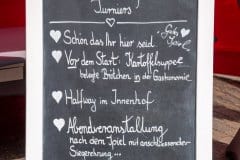 Turniers!
Schön das Ihr hier seid.
Vor dem Start: Kartoffelsuppe
belegte Brötchen in der Gastronomie
Halfway im Innenhof
Abendveranstaltung
nach dem Spiel mit anschliessender
Siegerehrung...